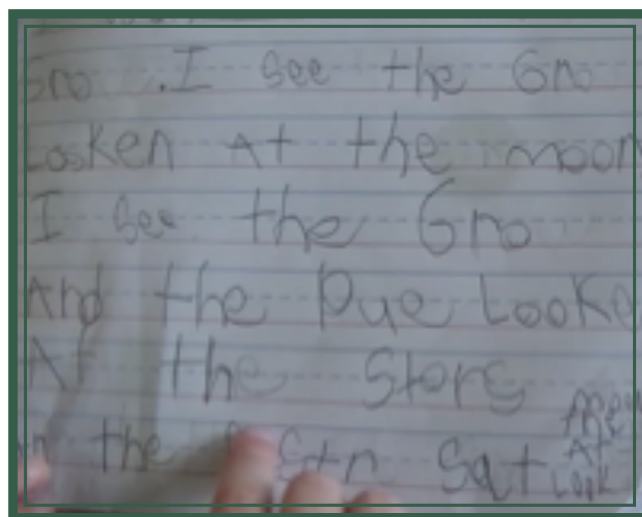 Gro .I see the Gro
Looken At the moon
I see the Gro
And the Due Looke
At the Stors
the Str Sat
they
At
Look